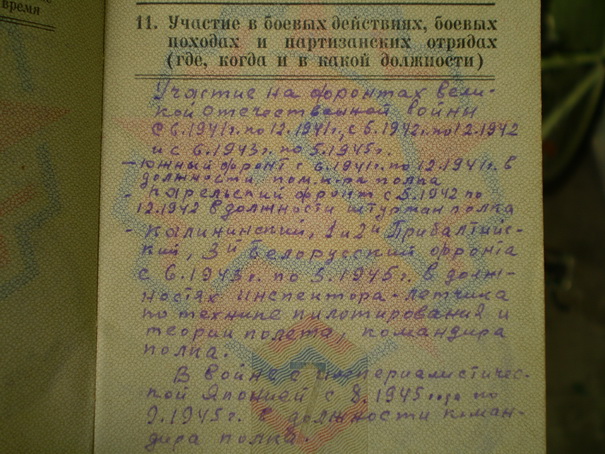 время
11. Участие в боевых действиях, боевых
походах и партизанских отрядах
(где, когда и в какой должности)
Участие на фронтах вели-
кой отечественной войны
с 6.1941г. по 12.1941г., с 5.1942г. по 12.1942
и с 6.1943г. по 5.1945г.
- Южный фронт с 6.1941г. по 12.1941г. в
должности пом. к-ра полка
- Карельский фронт с 5.1942 по
12.1942 в должности штурман полка
- Калининский, 1 и 2й Прибалтийс-
кий, 3й Белорусский фронта
с 6.1943г. по 5.1945г. в долж-
ностях инспектора-летчика
по технике пилотирования и
теории полета, командира
полка.
В войне с империалистичес-
кой Японией с 8.1945 года по
9.1945г. в должности коман-
дира полка.